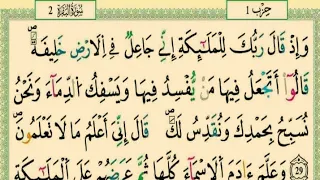 حِزْبُ 1
سُورَةُ الْبَقَرَةِ 2
وَإِذْ قَالَ رَبُّكَ لِلْمَلَٰٓئِكَةِ إِنِّے جَاعِلٞ فِے اِ۬لَارْضِ خَلِيفَةٗۖ
قَالُوٓاْ أَتَجْعَلُ فِيهَا مَنْ يُّفْسِدُ فِيهَا وَيَسْفِكُ اُ۬لدِّمَآءَ وَنَحْنُ
نُسَبِّحُ بِحَمْدِكَ وَنُقَدِّسُ لَكَۖ قَالَ إِنِّيَ أَعْلَمُ مَا لَا تَعْلَمُونَۖ
29 وَعَلَّمَ ءَادَمَ اَ۬لَاسْمَآءَ كُلَّهَا ثُمَّ عَرَضَهُمْ عَلَى اَ۬لْمَلَٰٓئِكَةِ